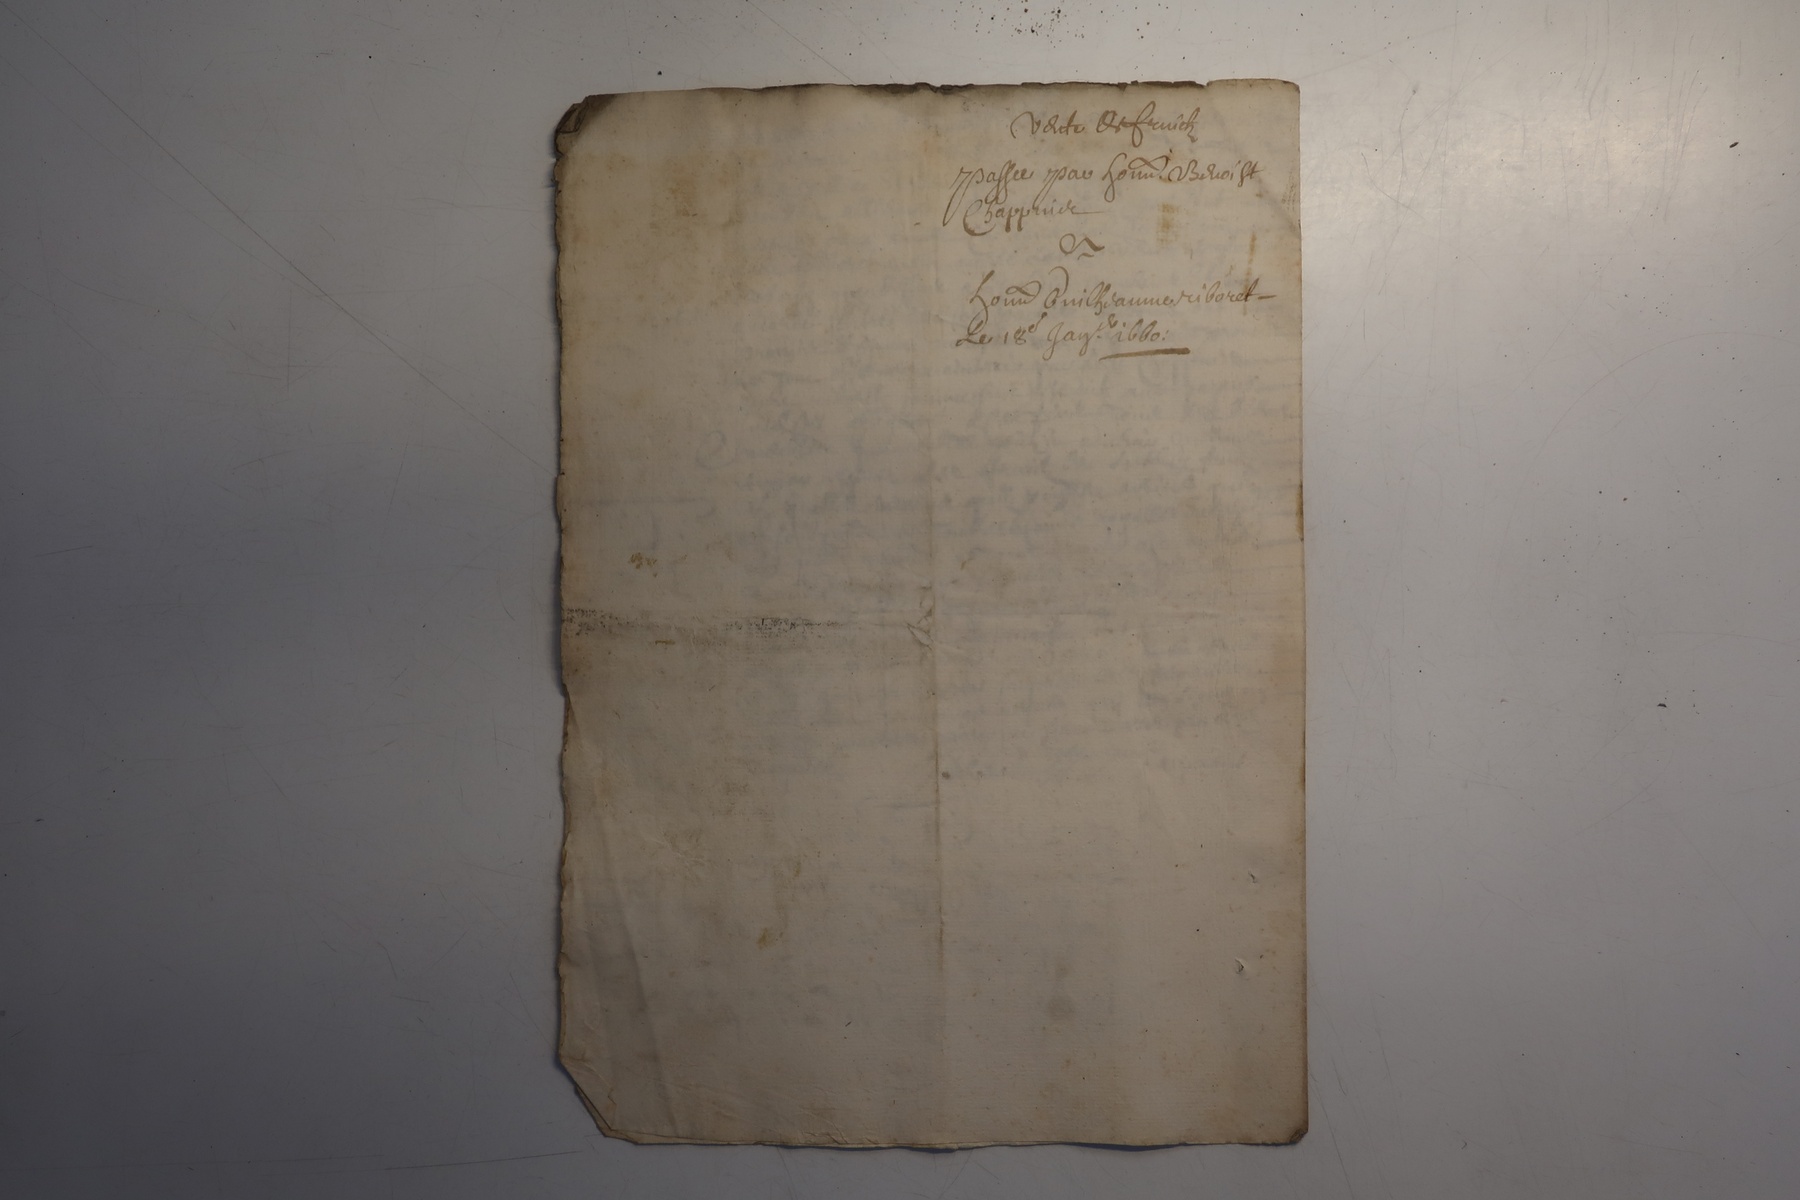 Vente de fruictz
passee par honn. Benoist
Chappuis
A
honn Guilheaume riboret
Le 18e Janer 1660: